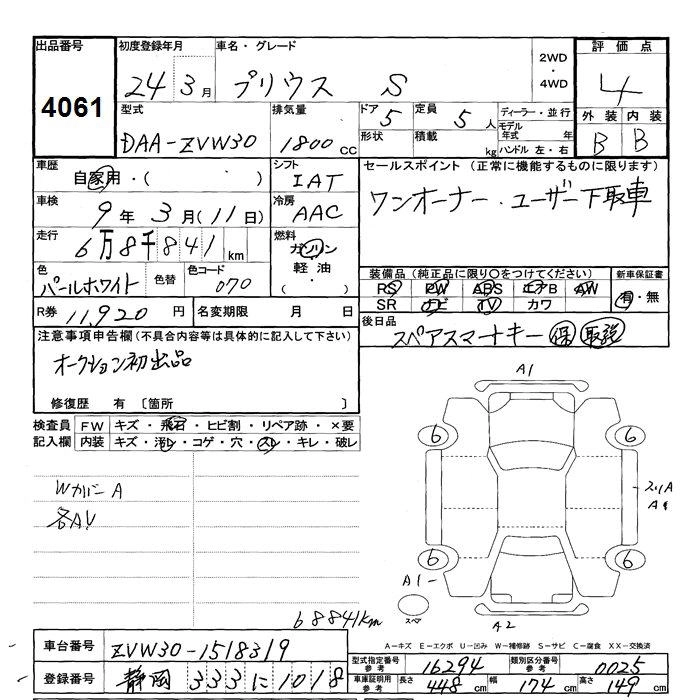 出品番号 初度登録年月 車名・グレード 2WD・4WD 評価点
4061 24年3月 プリウス S 4
型式 排気量 ドア 5 定員 5人 ディーラー・並行 外装 内装
DAA-ZVW30 1800cc 形状 積載 kg モデル年式 年 ハンドル 左・右 B B
車歴 自家用・( ) シフト IAT セールスポイント (正常に機能するものに限ります)
車検 9年3月(11日) 冷房 AAC ワンオーナー・ユーザー下取車
走行 6万8千841km 燃料 ガソリン・軽油・( )
色 パールホワイト 色替 色コード 070
装備品(純正品に限り〇をつけてください) 新車保証書
RS PW ABS エアB AW 有・無
SR ナビ TV カワ
R券 11,920円 名変期限 月 日 後日品
スペアスマートキー 保 取説
注意事項申告欄(不具合内容等は具体的に記入して下さい)
オークション初出品
修復歴 有 〔箇所 〕
検査員記入欄 FW キズ・飛石・ヒビ割・リペア跡・×要
内装 キズ・汚レ・コゲ・穴・スレ・キレ・破レ
WカバーA
各A,U
A1
6 6
スリA
A1
6 6
A1
スペア
A2
68841km
車台番号 ZVW30-1518319
登録番号 静岡 333 に 1018
A-キズ E-エクボ U-凹み W-補修跡 S-サビ C-腐食 XX-交換済
型式指定番号 参考 16294 類別区分番号 参考 0025
車庫証明用 参考 長さ 448cm 幅 174cm 高さ 149cm